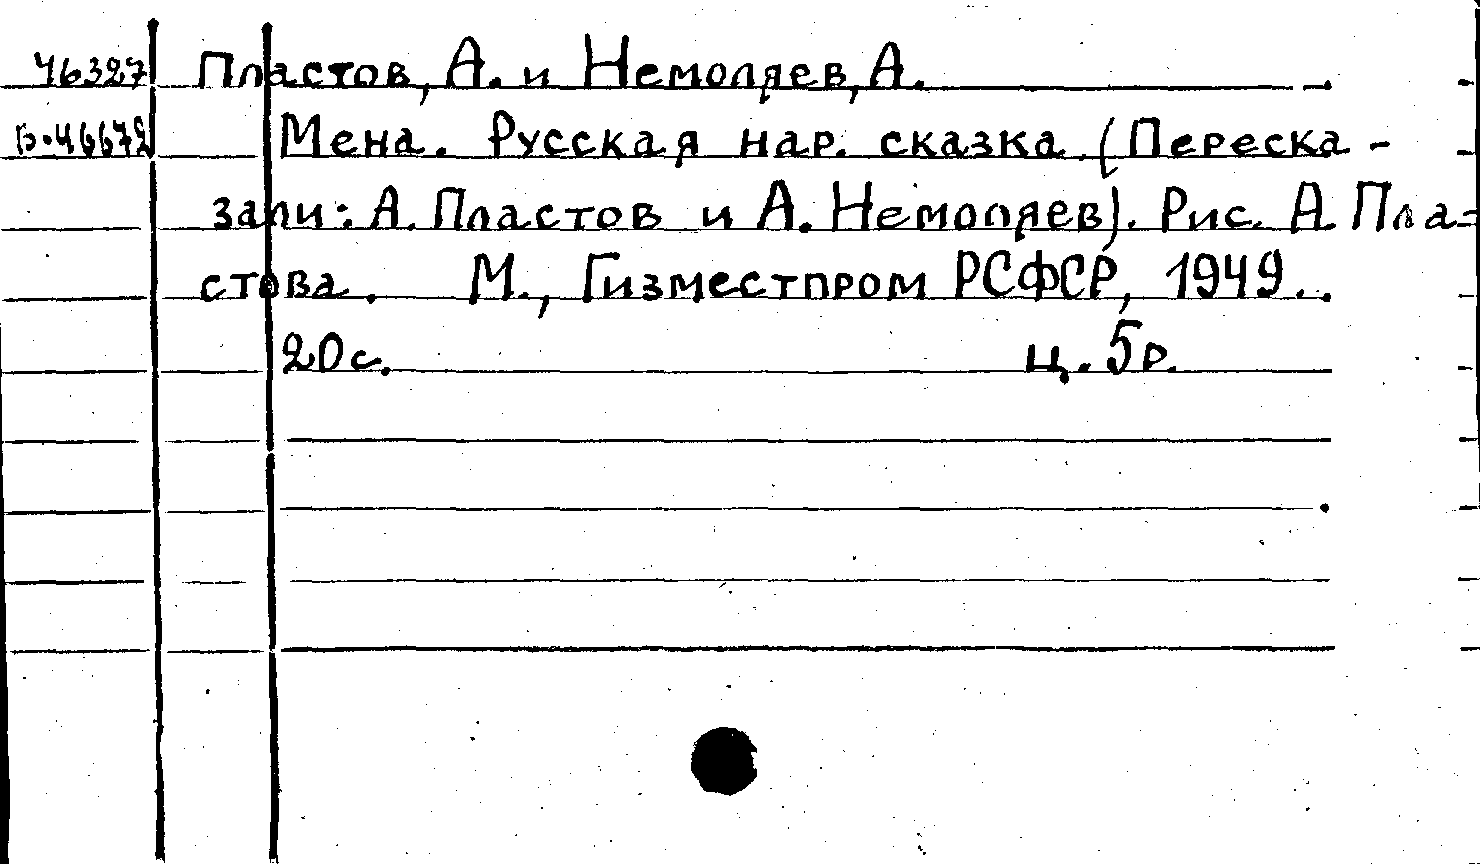 46327 Пластов, А. и Немоляев, А.
Б.46672 Мена. Русская нар. сказка. (Переска-
зали: А. Пластов и А. Немоляев). Рис. А. Пла-
стова. М., Гизместпром РСФСР, 1949.
20с. ц. 5р.